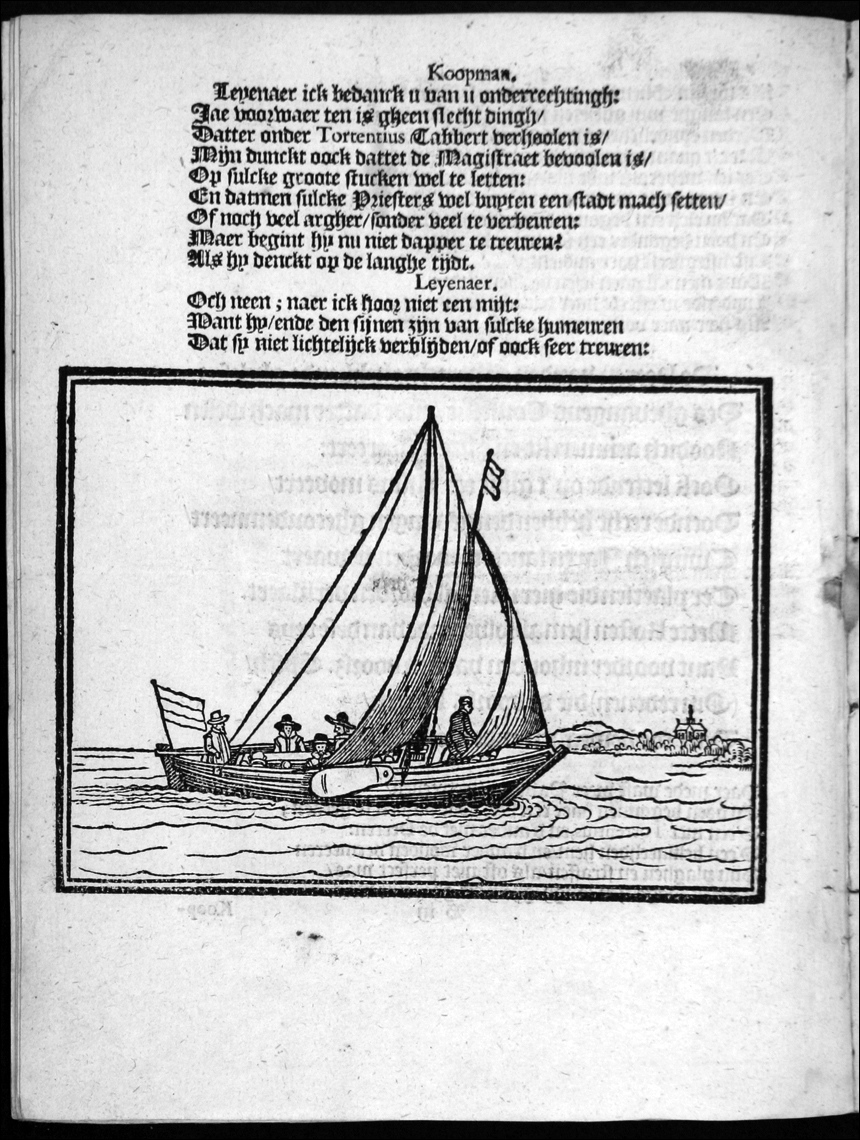 Koopman.
Leyenaer ick bedanck u van u onderrechtingh:
Jae voorwaer ten is gheen slecht dingh/
Datter onder Tortentius Tabbert verhoolen is/
Mijn dunckt oock dattet de Magistraet bevoolen is/
Op sulcke groote stucken wel te letten:
En datmen sulcke Priesters wel buyten een stadt mach setten/
Of noch veel argher/sonder veel te verbeuren:
Maer begint hy nu niet dapper te treuren?
Als hy denckt op de langhe tijdt.
Leyenaer.
Och neen ; naer ick hoor niet een mijt:
Want hy/ende den sijnen zijn van sulcke humeuren
Dat sy niet lichtelijck verblijden/of oock seer treuren: